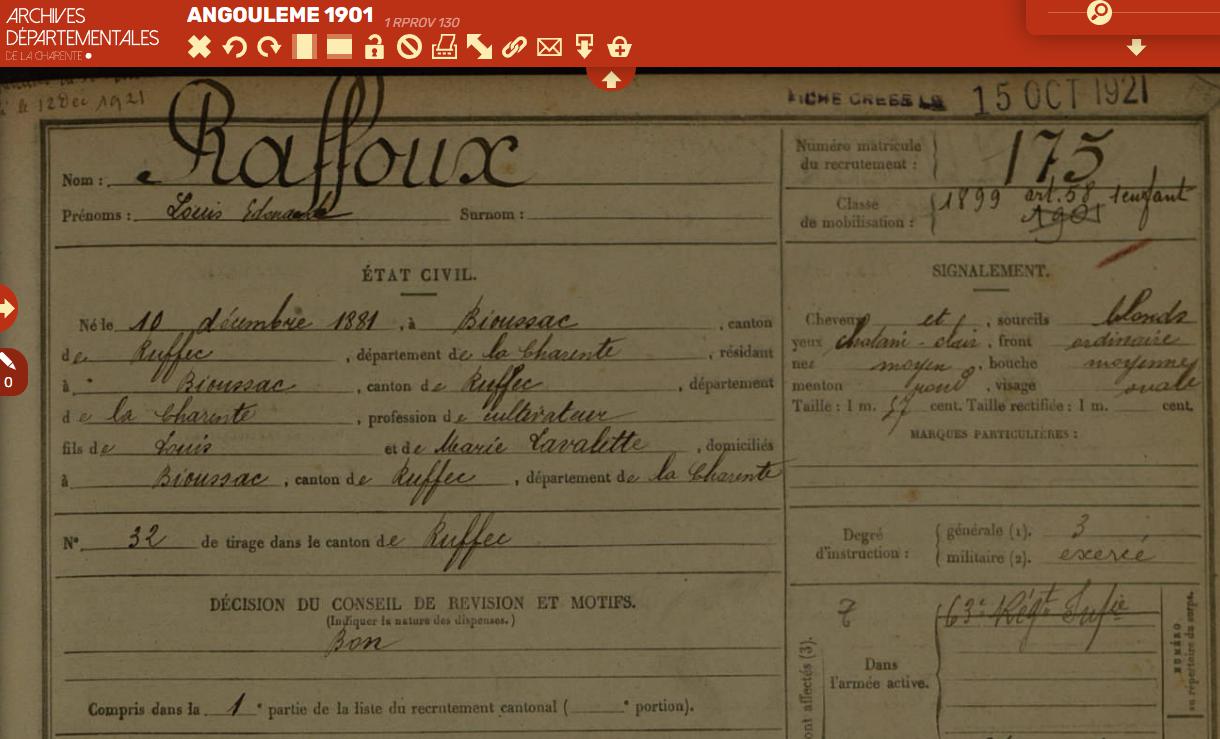 ARCHIVES
DÉPARTEMENTALES
DE LA CHARENTE
ANGOULEME 1901 1 RPROV 130
le 12 Déc 1921
FICHE CREEE LE 15 OCT 1921
Nom : Raffoux
Prénoms : Louis Edouard Surnom :
Numéro matricule
du recrutement : 175
Classe
de mobilisation : 1899 art. 58 1 enfant
1901
ÉTAT CIVIL.
Né le 10 décembre 1881, à Bioussac, canton
de Ruffec, département de la Charente, résidant
à Bioussac, canton de Ruffec, département
de la Charente, profession de cultivateur
fils de Louis et de Marie Lavalette, domiciliés
à Bioussac, canton de Ruffec, département de la Charente
N° 32 de tirage dans le canton de Ruffec
DÉCISION DU CONSEIL DE REVISION ET MOTIFS.
(Indiquer la nature des dispenses.)
Bon
Compris dans la 1e partie de la liste du recrutement cantonal ( e portion).
SIGNALEMENT.
Cheveux et, sourcils blonds
yeux chatain-clair, front ordinaire
nez moyen, bouche moyenne
menton rond, visage ovale
Taille : 1 m. 57 cent. Taille rectifiée : 1 m. cent.
MARQUES PARTICULIÈRES :
Degré
d'instruction :
générale (1). 3
militaire (2). exercé
Dans
l'armée active.
63e Régt Infie
NUMÉRO
au répertoire du corps.
ont affectés (3).
0